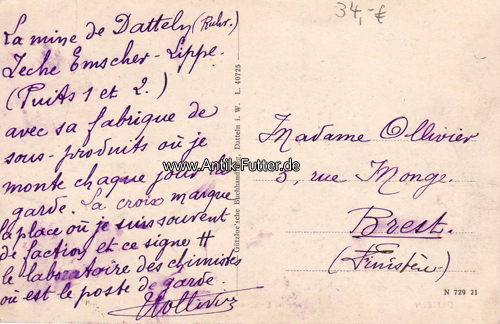 34,-€
La mine de Datteln (Ruhr.)
Zeche Emscher-Lippe.
(Puits 1 et 2.)
avec sa fabrique de
sous-produits où je
monte chaque jour la
garde. La croix marque
la place où je suis souvent
de faction, et ce signe #
le laboratoire des chimistes
où est le poste de garde.
Ollivier
Datteln i. W. L. 40725
Madame Ollivier
rue Monge.
Brest.
(Finistère)
N 729 21
www.Antik-Futter.de